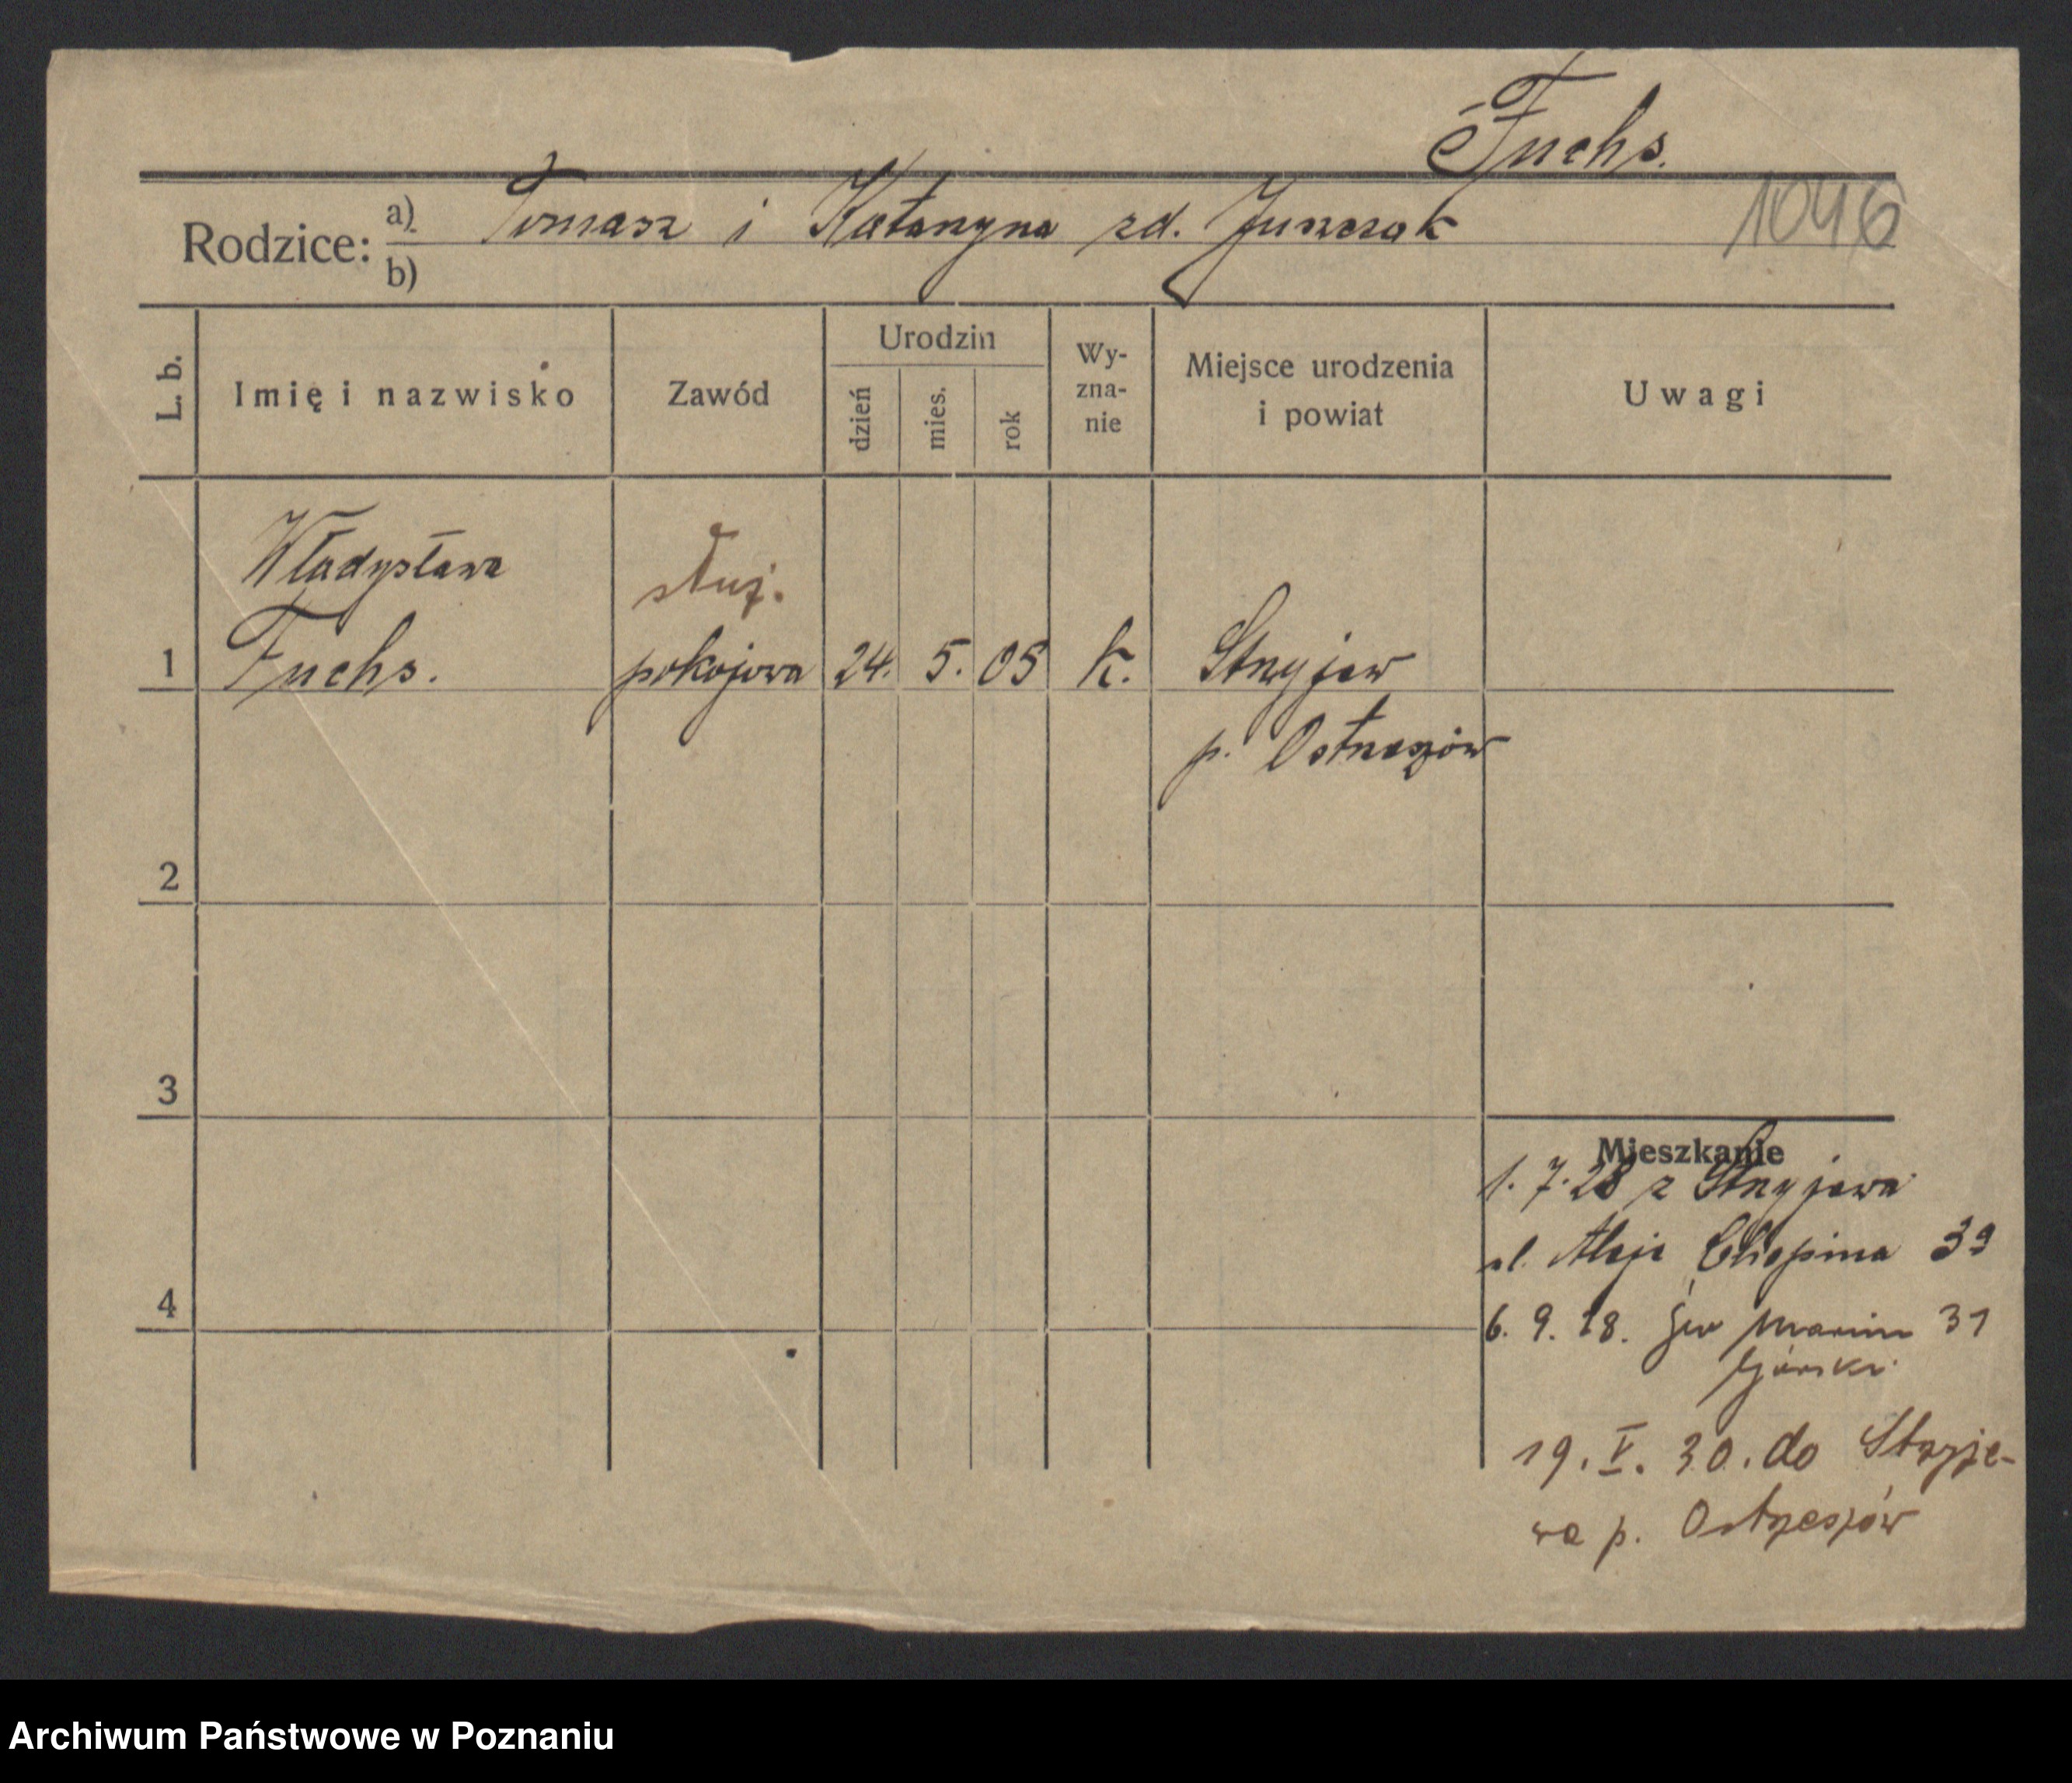 Fuchs.
1046
Rodzice: a) Tomasz i Katarzyna zd. Juszczak
b)
L. b.
Imię i nazwisko
Zawód
Urodzin
dzień
mies.
rok
Wy-
zna-
nie
Miejsce urodzenia
i powiat
Uwagi
Władysława
służ.
1 Fuchs. pokojowa 24. 5. 05 k. Stryjew
p. Ostrzeszów
2
3
Mieszkanie
1. 7. 28 z Stryjewa
ul. Aleje Chopina 39
4
6. 9. 28. Św Marcin 31
Górski
19. V. 30. do Stryje-
wa p. Ostrzeszów
Archiwum Państwowe w Poznaniu